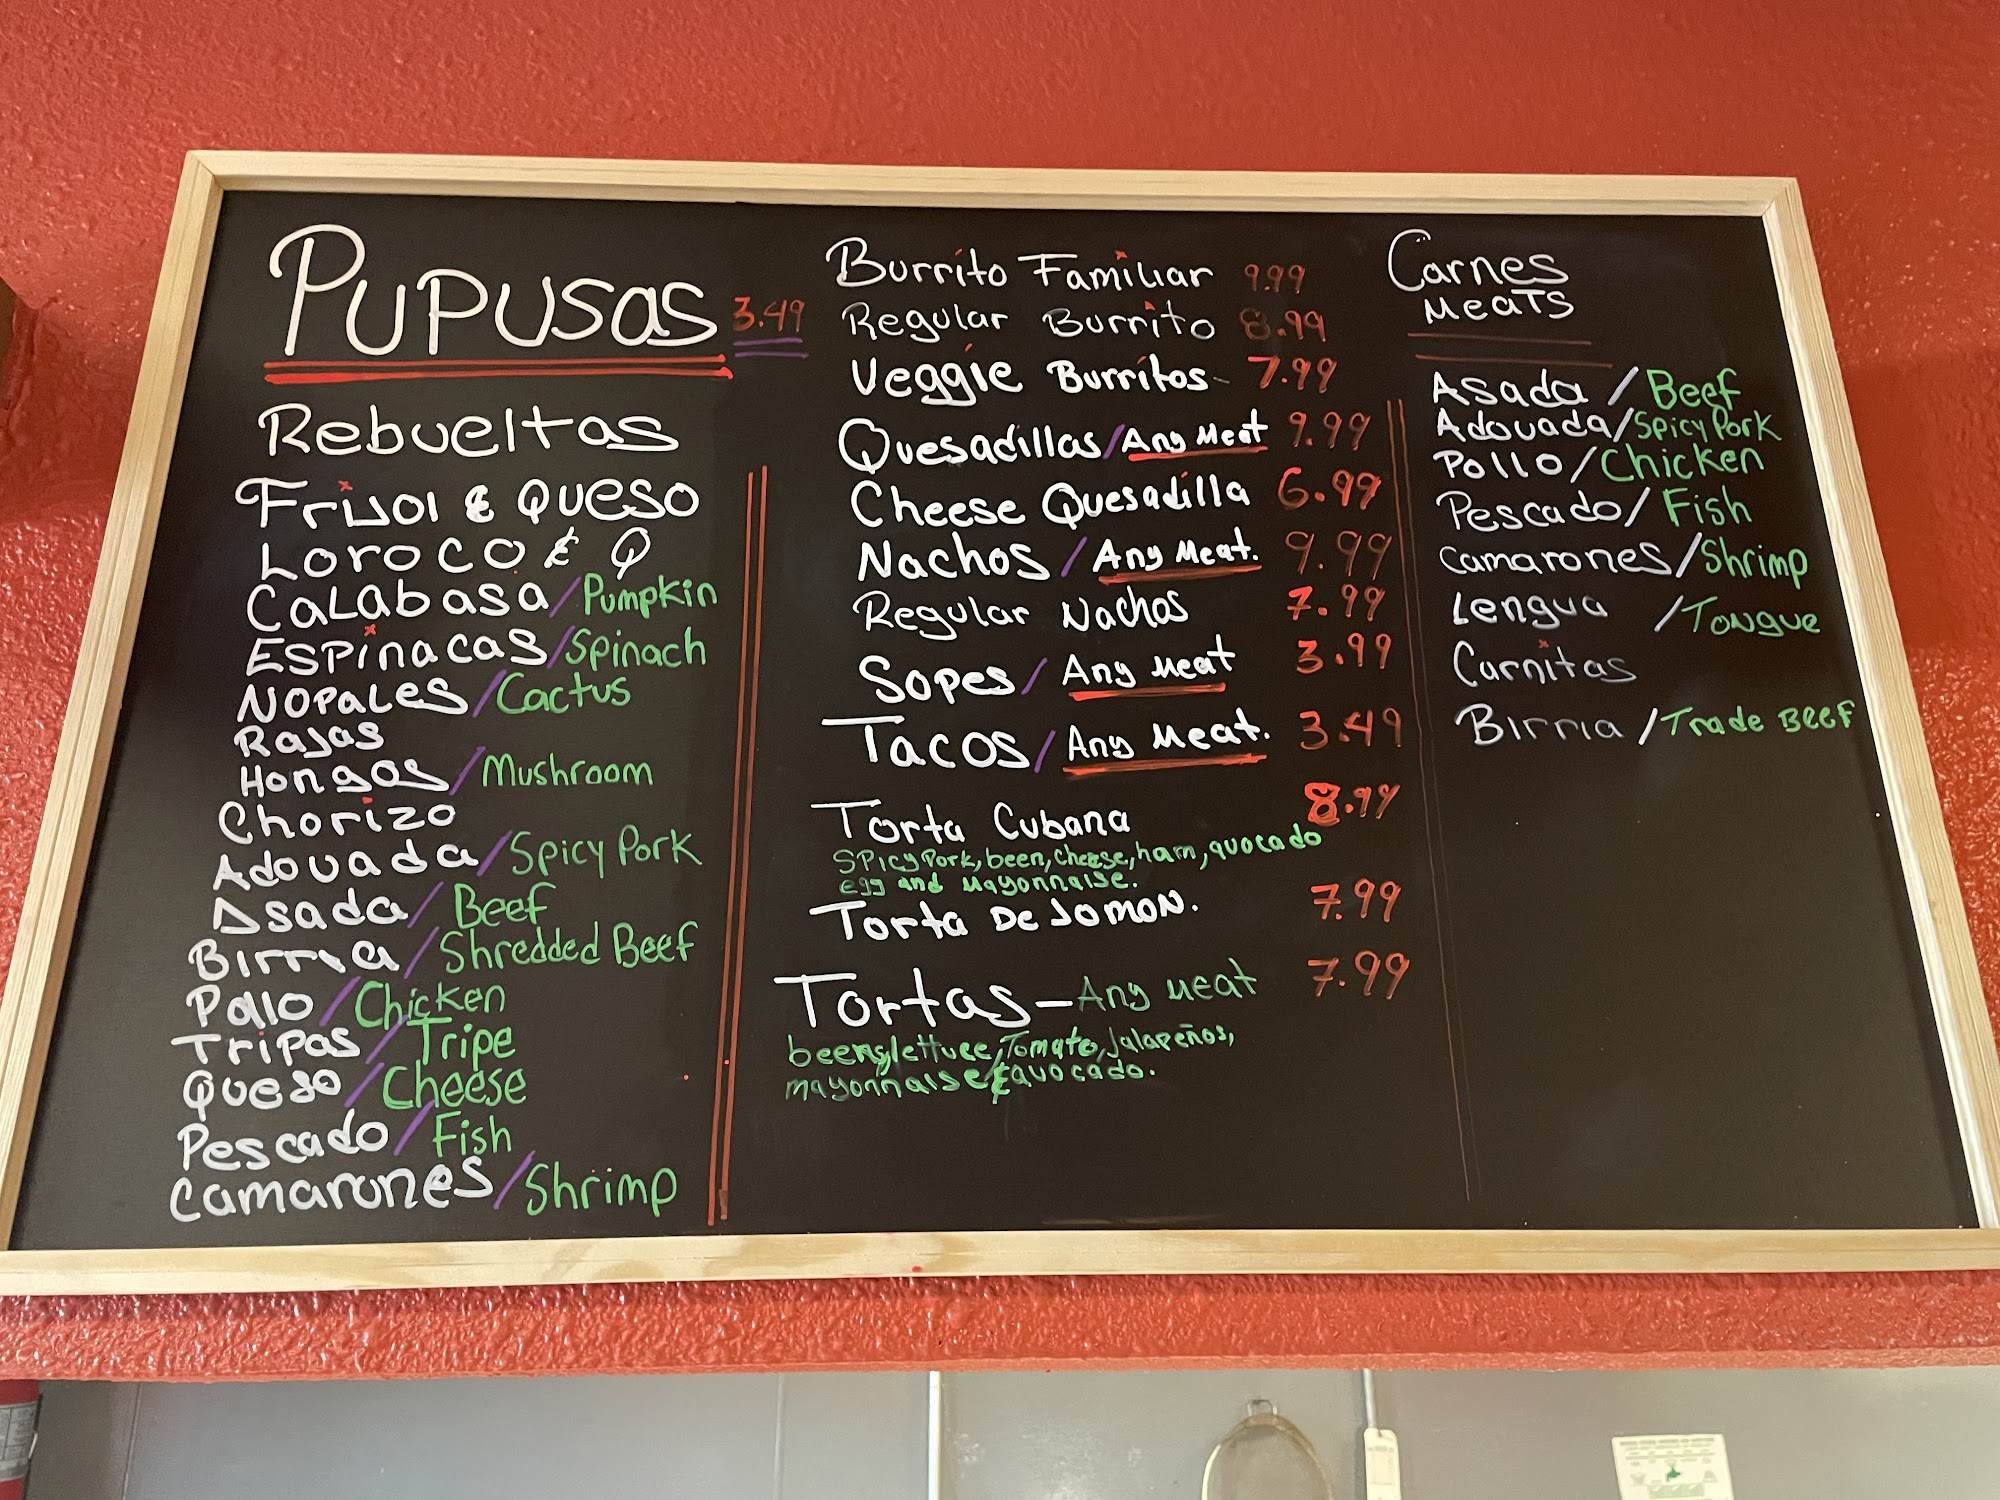 PUPUSAS 3.49
Rebueltas
Frijol & Queso
Loroco & Q
Calabasa / Pumpkin
Espinacas / Spinach
Nopales / Cactus
Rajas
Hongos / Mushroom
Chorizo
Adovada / Spicy Pork
Asada / Beef
Birria / Shredded Beef
Pollo / Chicken
Tripas / Tripe
Queso / Cheese
Pescado / Fish
Camarones / Shrimp
Burrito Familiar 9.99
Regular Burrito 8.99
Veggie Burritos - 7.99
Quesadillas / Any Meat 9.99
Cheese Quesadilla 6.99
Nachos / Any Meat. 9.99
Regular Nachos 7.99
Sopes / Any Meat 3.99
Tacos / Any Meat. 3.49
Torta Cubana 8.99
Spicy Pork, been, cheese, ham, avocado
egg and mayonnaise.
Torta De Jomon. 7.99
Tortas - Any Meat 7.99
beens, lettuce, Tomato, Jalapeños,
mayonnaise & avocado.
Carnes
Meats
Asada / Beef
Adovada / Spicy Pork
Pollo / Chicken
Pescado / Fish
Camarones / Shrimp
Lengua / Tongue
Carnitas
Birria / Trade Beef